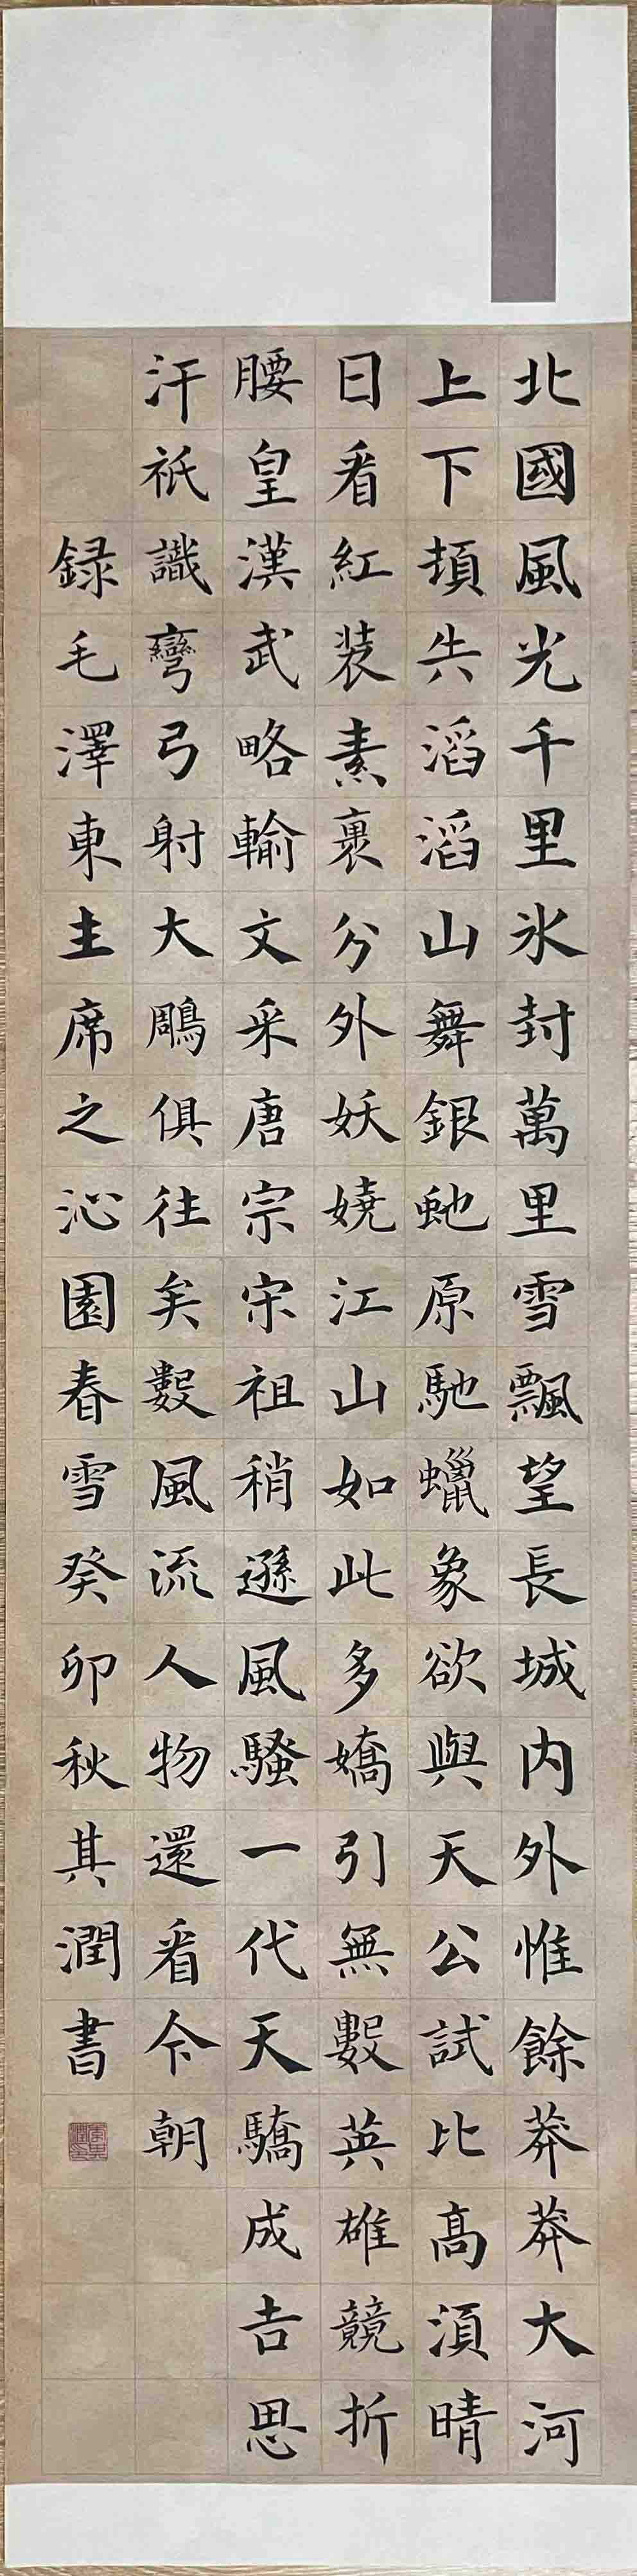 北國風光千里氷封萬里雪飄望長城内外惟餘莽莽大河
上下頓失滔滔山舞銀虵原馳蠟象欲與天公試比高須晴
日看紅裝素裹分外妖嬈江山如此多嬌引無數英雄競折
腰皇漢武略輸文采唐宗宋祖稍遜風騷一代天驕成吉思
汗祇識彎弓射大鵰俱往矣數風流人物還看今朝
録毛澤東主席之沁園春雪癸卯秋其潤書